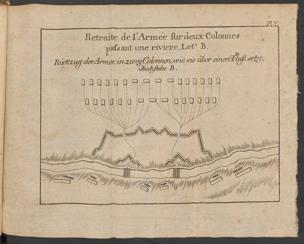 Pl. V.
Retraite de l'Armée sur deux Colonnes
passant une riviere, Let.ᵉ B.
Rückzug der Armee in zweÿ Colonnen, wie sie über einen Fluß setzt.
Buchstabe B.